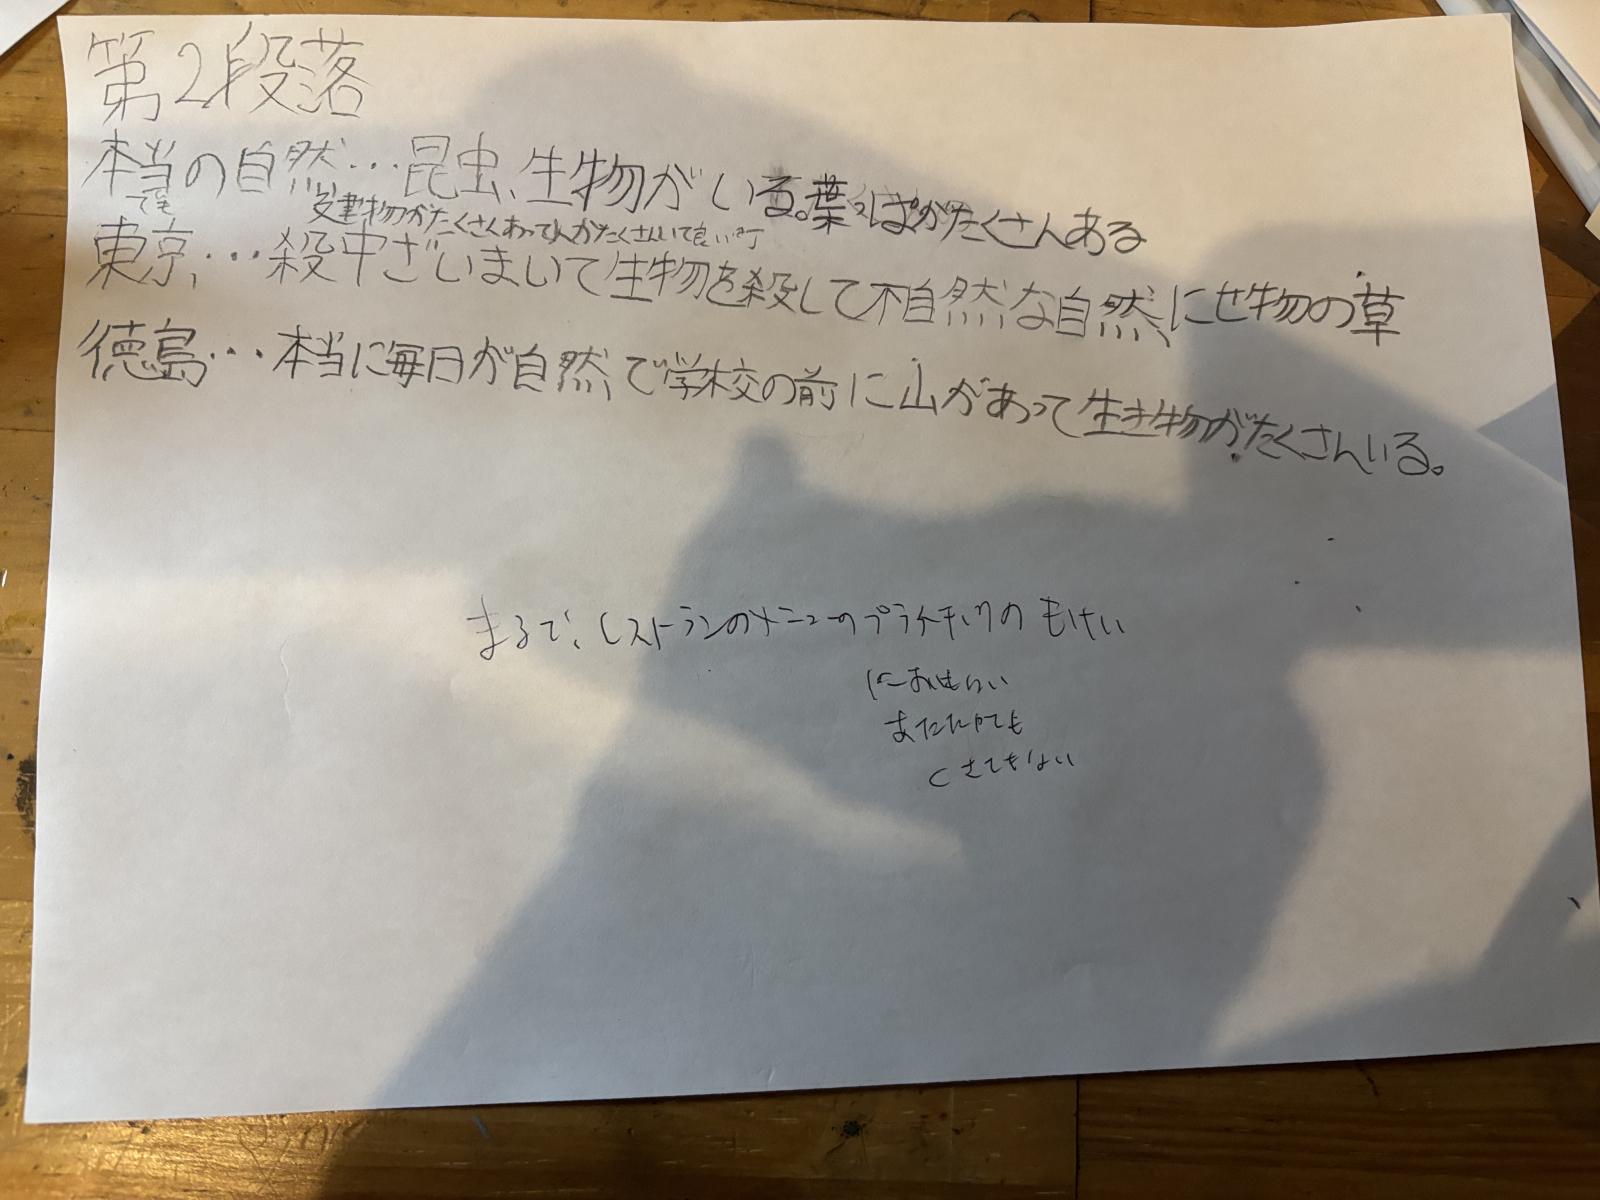 第2段落
本当の自然…昆虫、生物がいる。葉っぱがたくさんある
でも
建物がたくさんあって人がたくさんいて良い町
東京…殺中ざいまいて生物を殺して不自然な自然、にせ物の草
徳島…本当に毎日が自然で学校の前に山があって生き物がたくさんいる。
まるで、レストランのメニューのプラスチックのもけい
においもない
あたたかくても
くさくもない